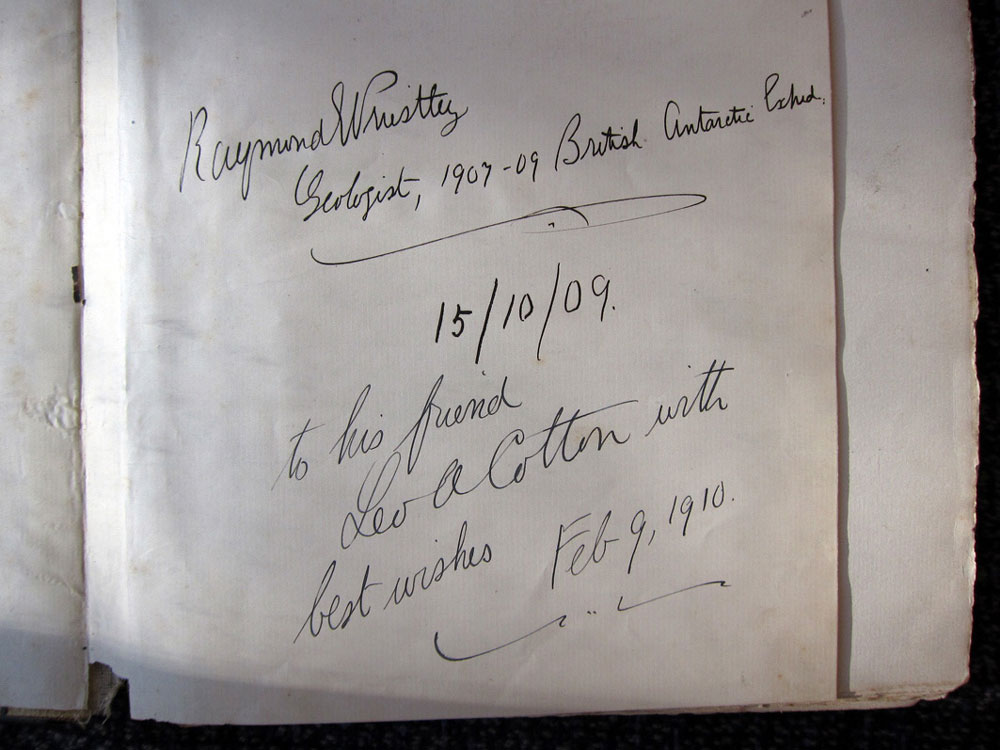 Raymond Priestley
Geologist, 1907-09 British Antarctic Exped.
15/10/09.
to his friend
Leo A Cotton with
best wishes Feb 9, 1910.